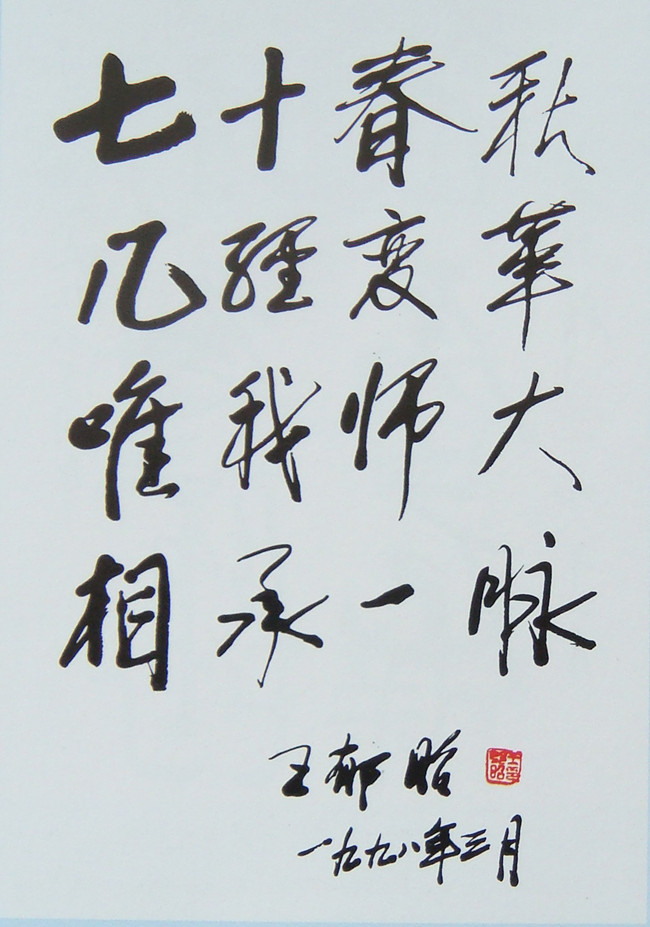 七十春秋
几经变華
唯我师大
相承一脉
王郁昭
一九九八年三月